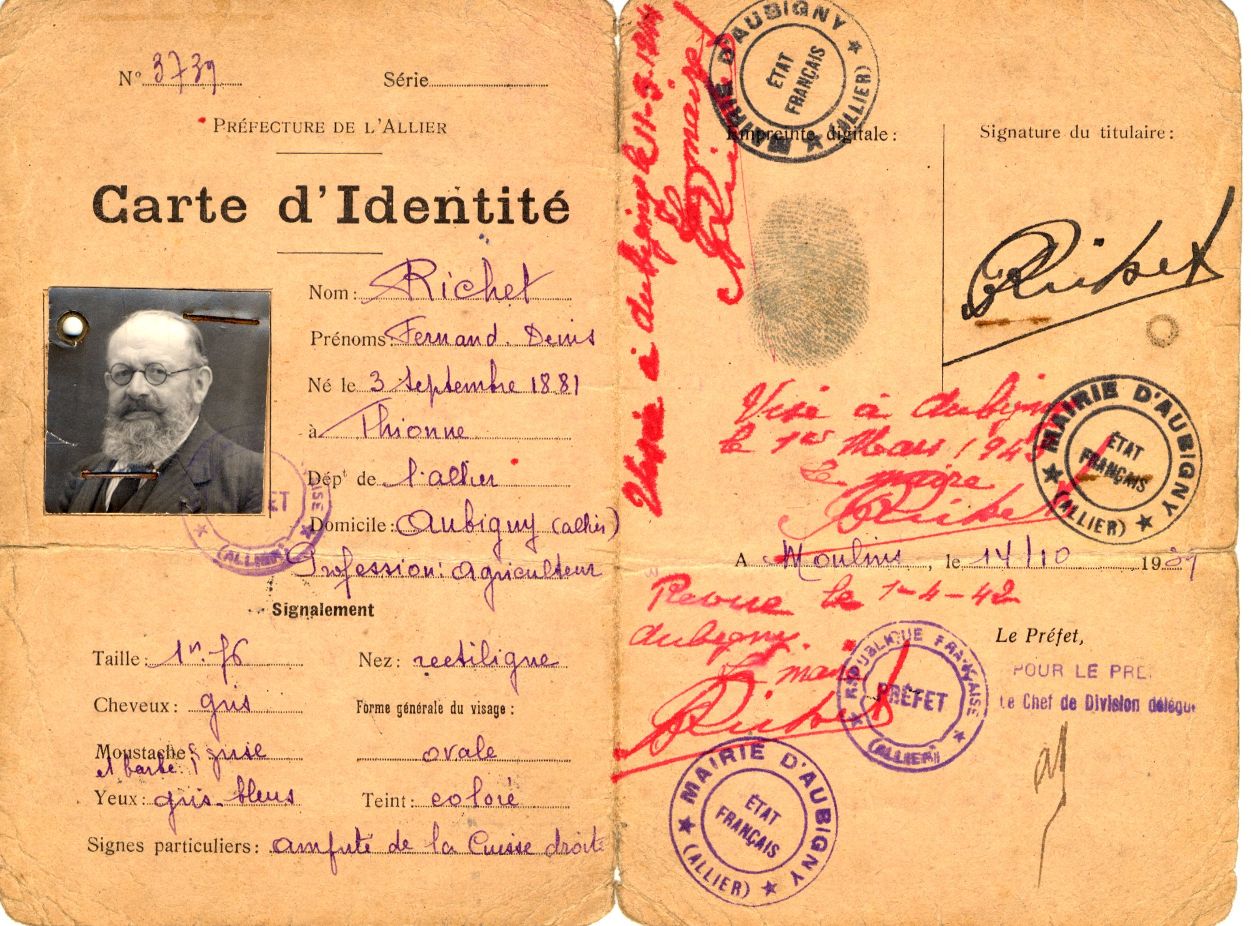 N° 3739 Série
PRÉFECTURE DE L'ALLIER
Carte d'Identité
Nom: Richet
Prénoms: Fernand. Denis
Né le 3 septembre 1881
à Thionne
Dépt de l'allier
Domicile: Aubigny (allier)
Profession: agriculteur
Signalement
Taille: 1m.76
Nez: rectiligne
Cheveux: gris
Forme générale du visage:
Moustache et barbe: grise
ovale
Yeux: gris-bleus
Teint: coloré
Signes particuliers: amputé de la Cuisse droite
PRÉFET
(ALLIER)
à aubigny le 11-5-1944
Le maire
Richet
MAIRIE D'AUBIGNY
ÉTAT FRANÇAIS
(ALLIER)
Empreinte digitale:
Signature du titulaire:
Richet
Visé à Aubigny
le 1er Mars 1943
Le maire
Richet
MAIRIE D'AUBIGNY
ÉTAT FRANÇAIS
(ALLIER)
A Moulins, le 14/10 1939
Revue le 1-4-42
aubigny.
Le maire
Richet
RÉPUBLIQUE FRANÇAISE
PRÉFET
(ALLIER)
Le Préfet,
POUR LE PRÉ
Le Chef de Division délégué
MAIRIE D'AUBIGNY
ÉTAT FRANÇAIS
(ALLIER)